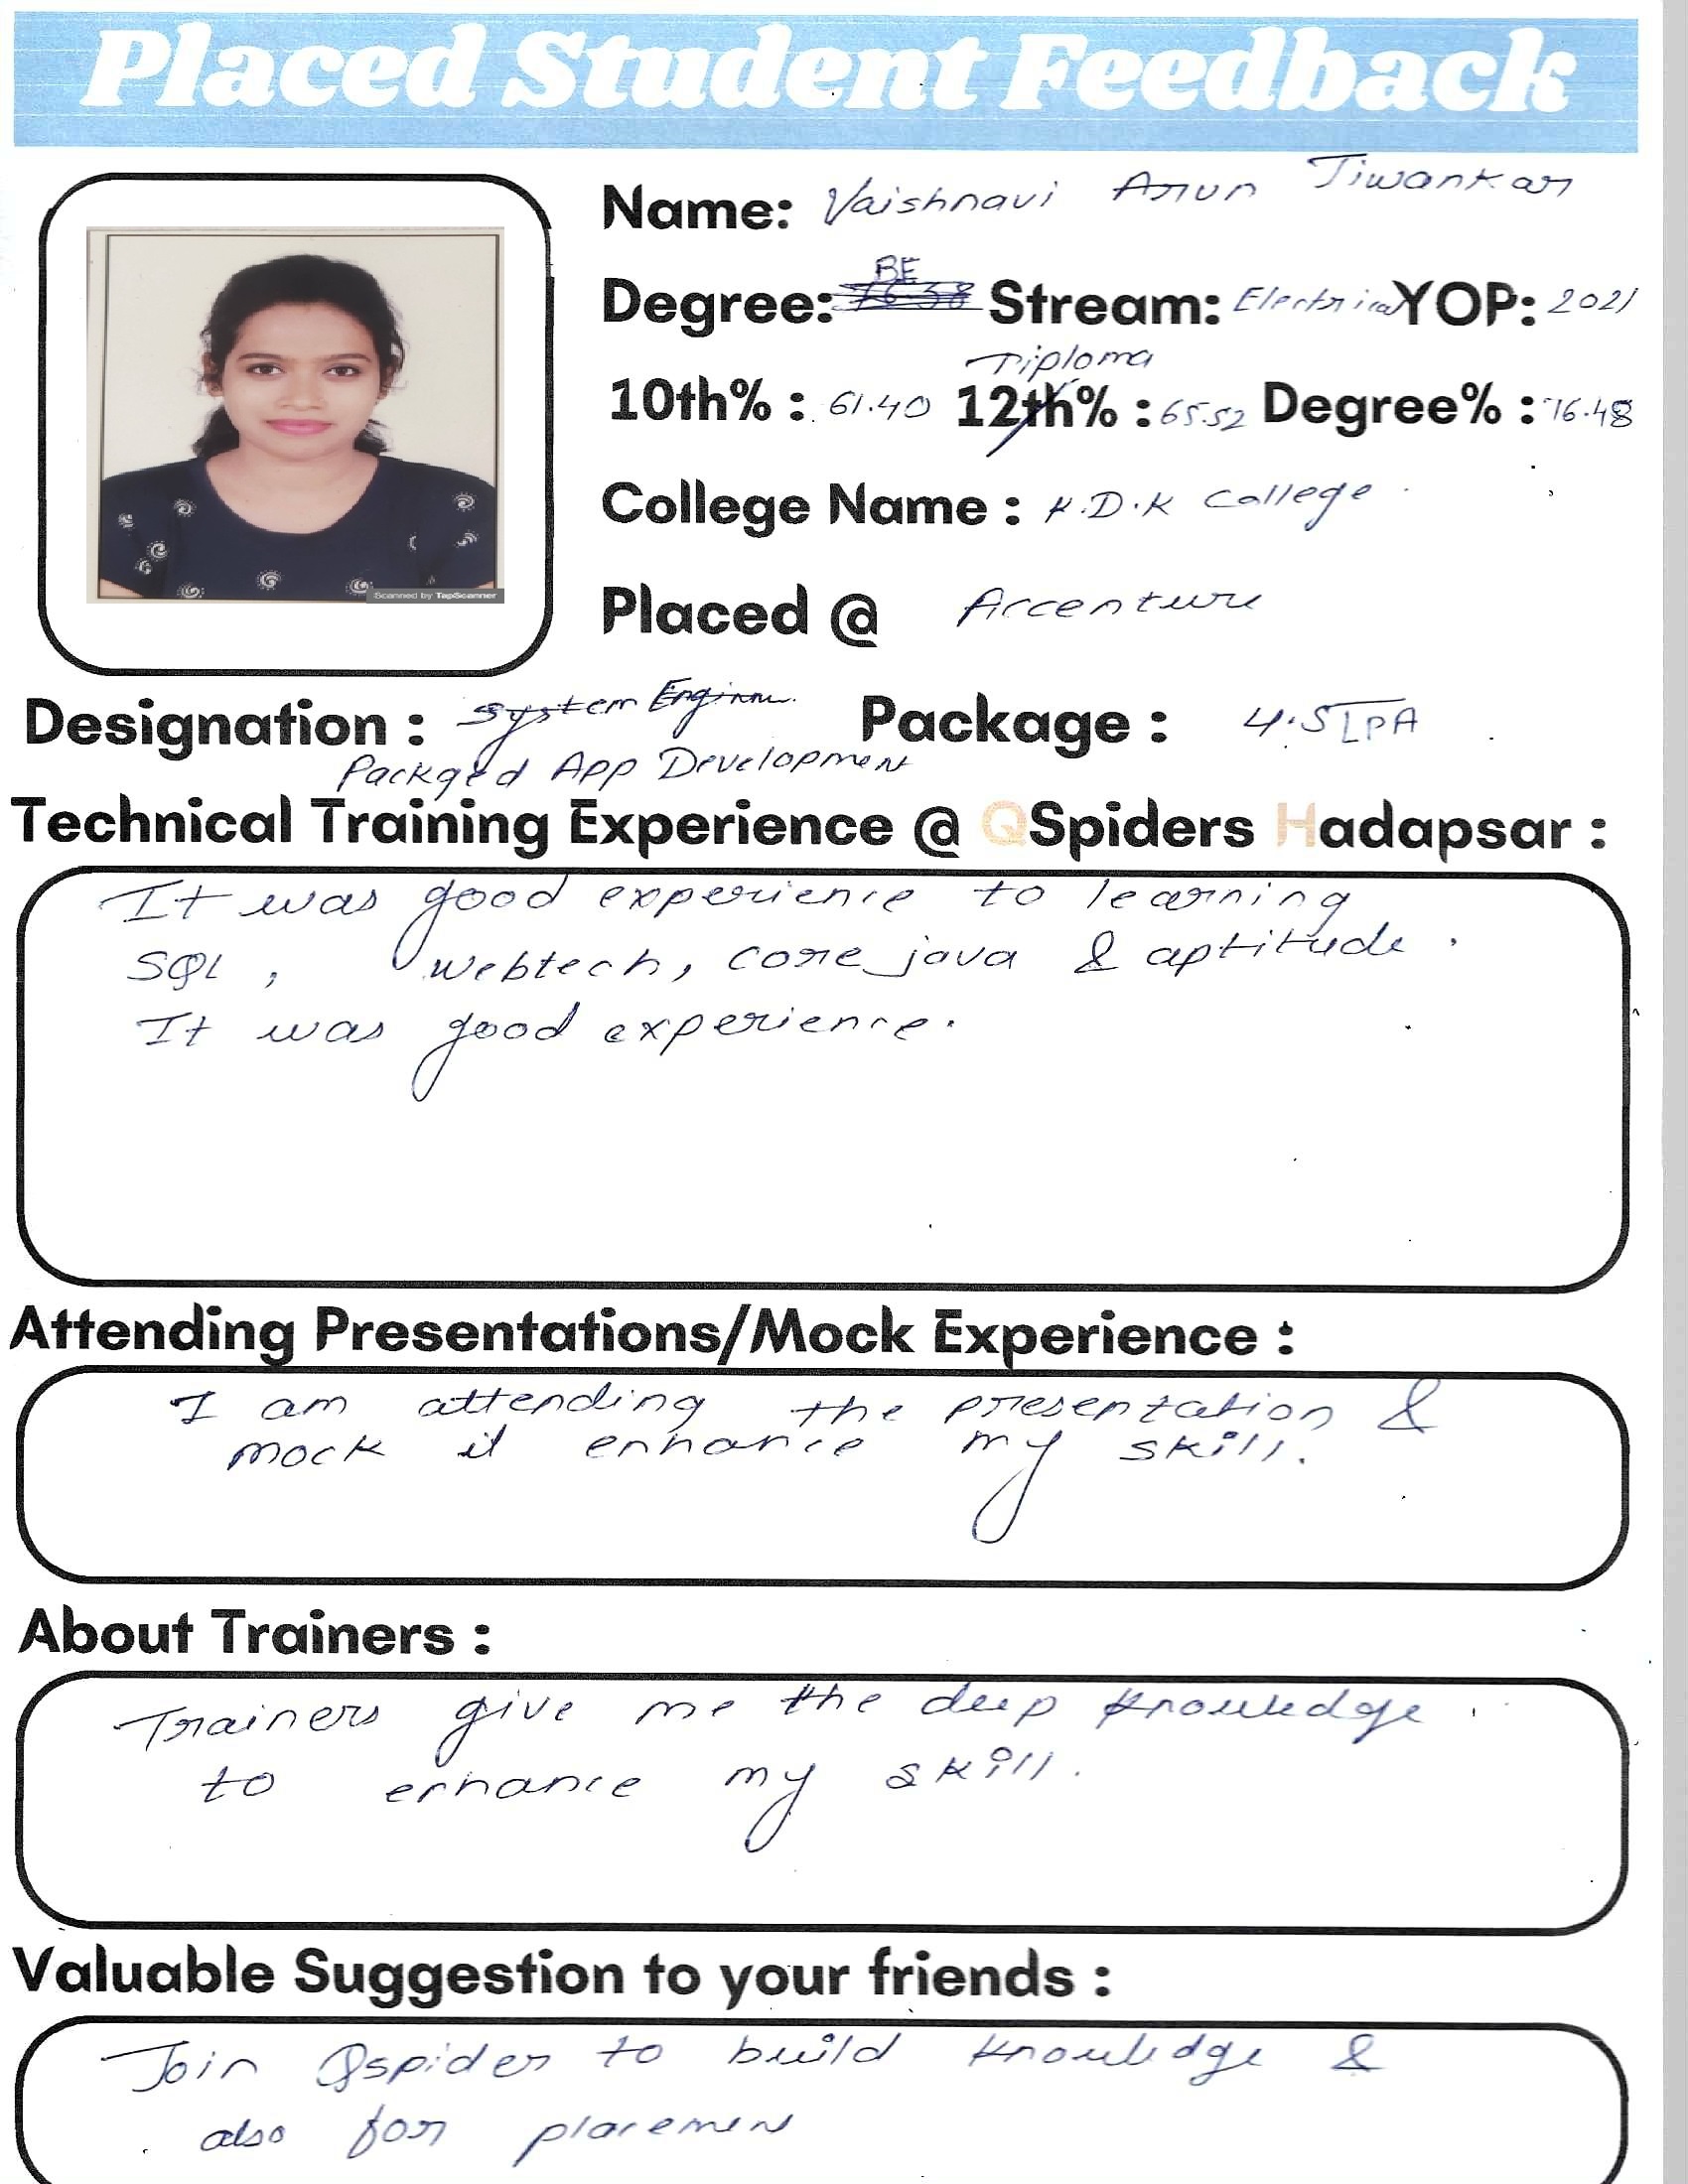 Placed Student Feedback
Name: Vaishnavi Arun Jiwankar
BE
Degree: 76.38 Stream: Electrical YOP: 2021
Diploma
10th% : 61.40 12th% : 65.52 Degree% : 76.48
College Name : K.D.K College
Placed @ Accenture
Scanned by TapScanner
Designation : System Engineer Package : 4.5 LPA
Packged App Development
Technical Training Experience @ QSpiders Hadapsar :
It was good experience to learning
SQL , webtech, core java & aptitude .
It was good experience.
Attending Presentations/Mock Experience :
I am attending the presentation &
mock it enhance my skill.
About Trainers :
Trainers give me the deep knowledge .
to enhance my skill.
Valuable Suggestion to your friends :
Join Qspider to build knowledge &
also for placemen